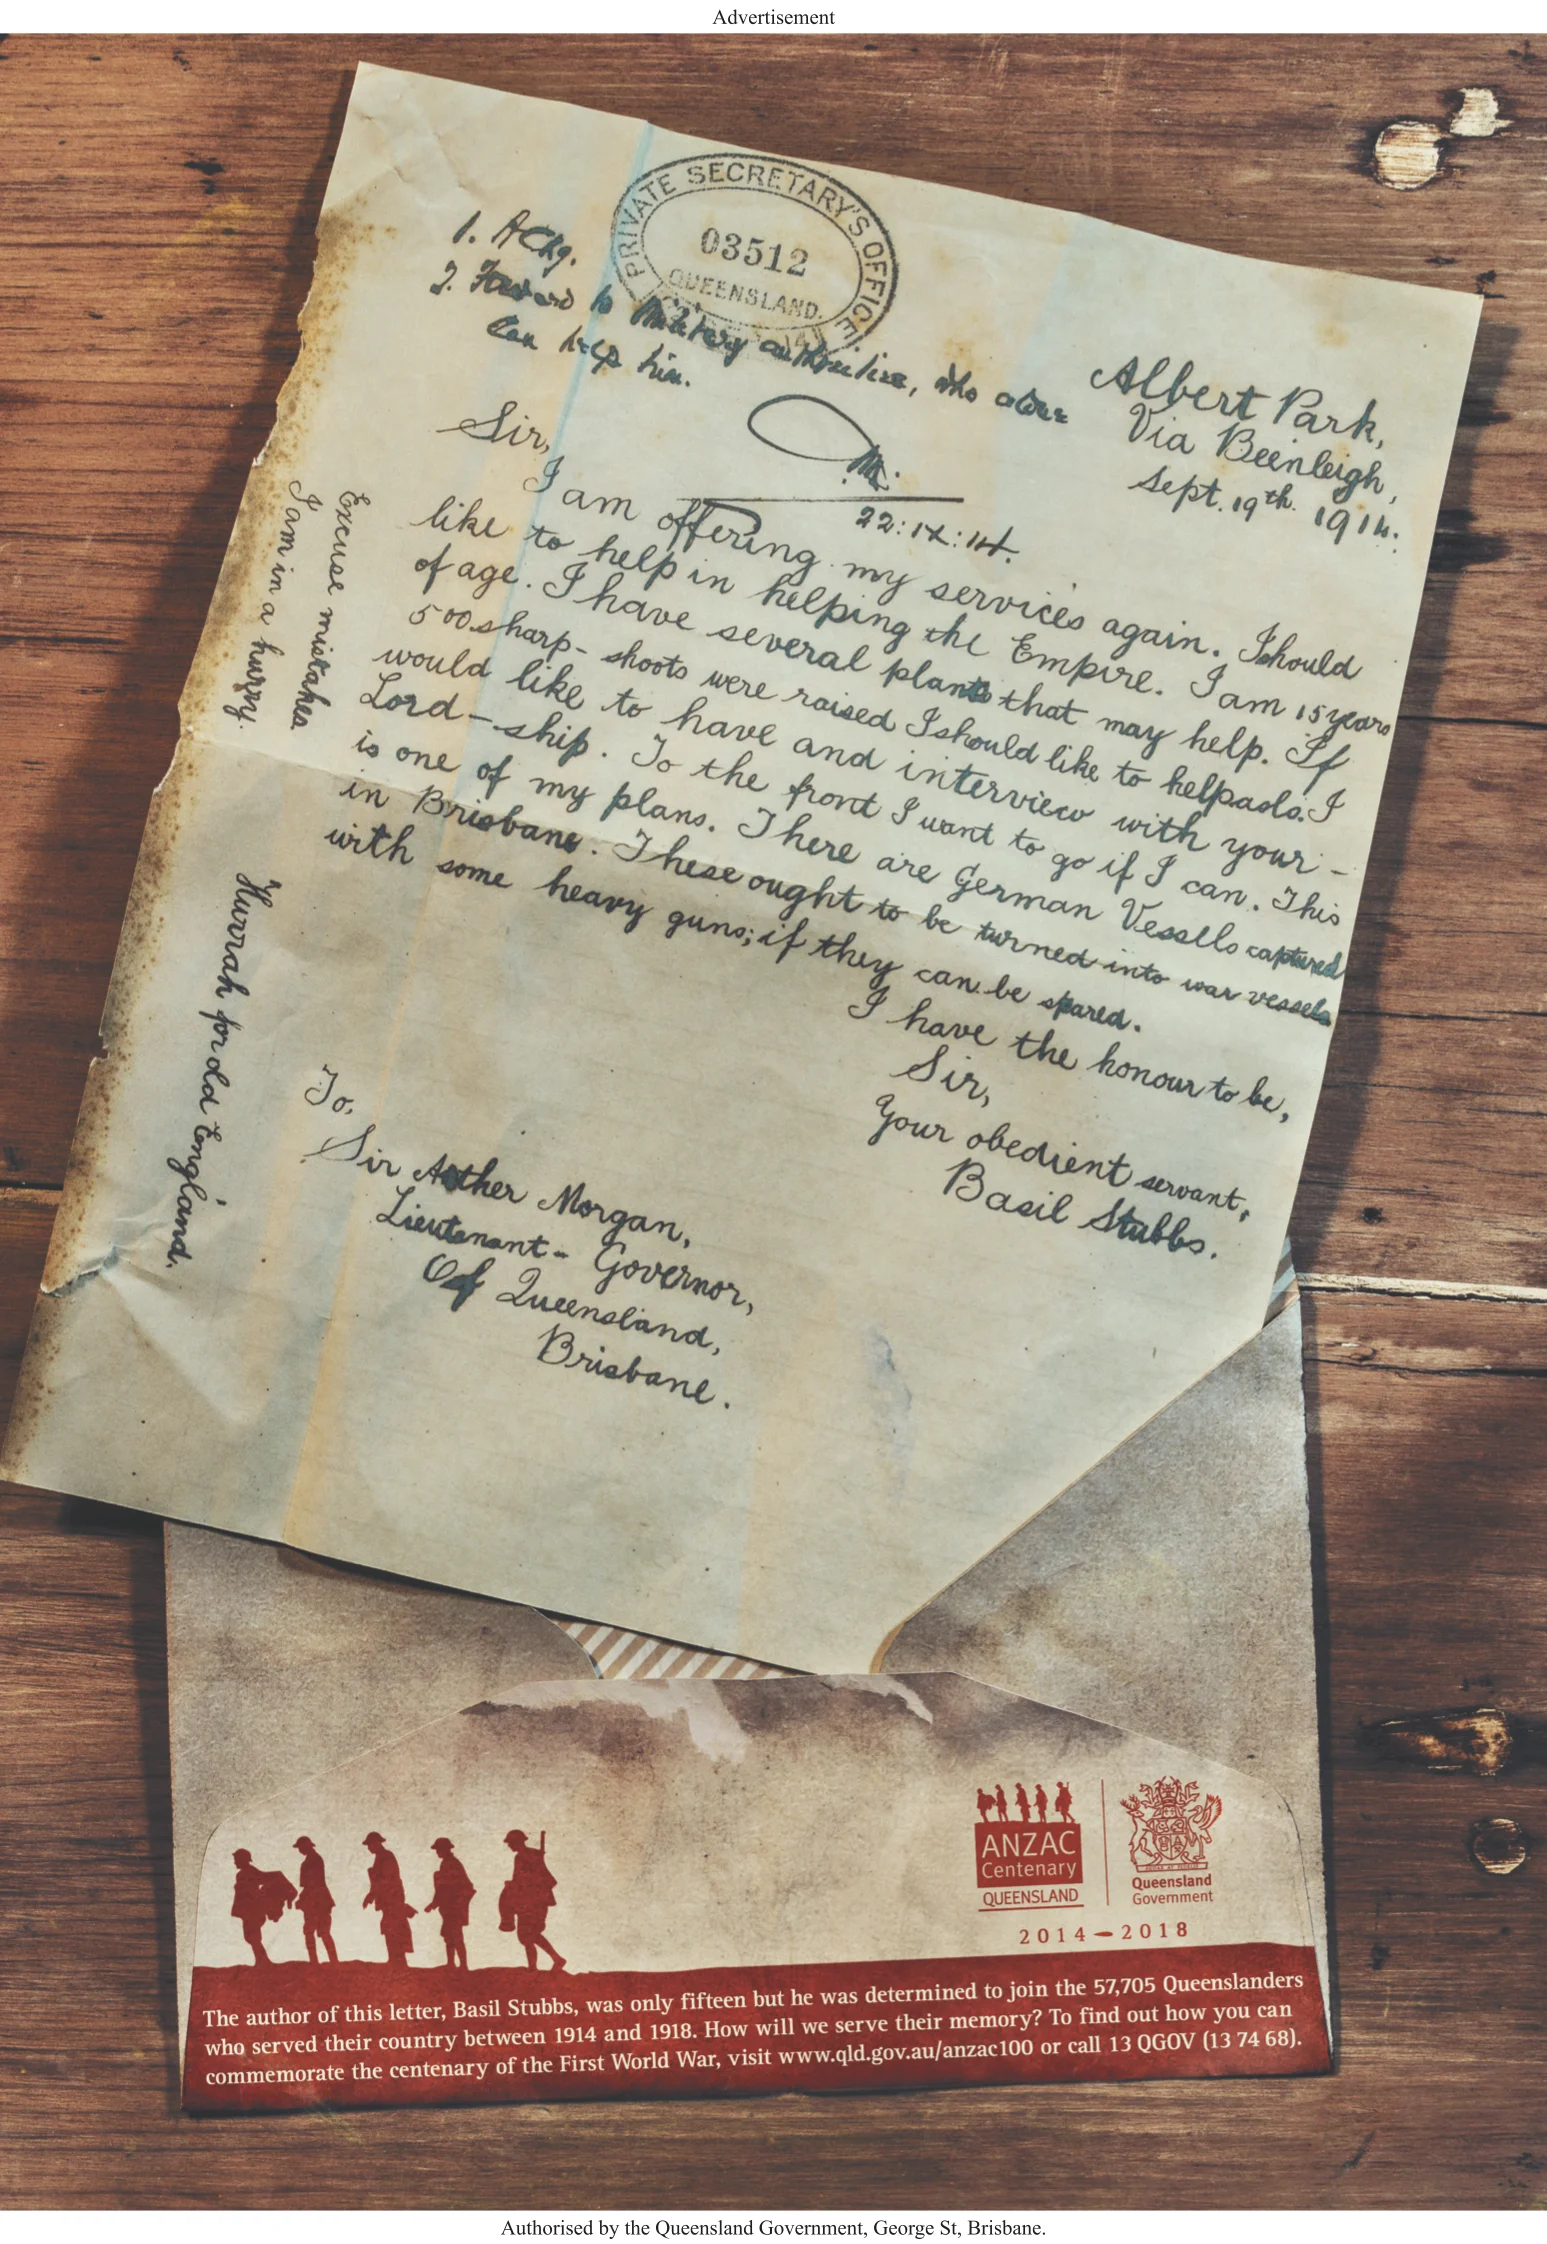 Advertisement
PRIVATE SECRETARY'S OFFICE
03512
QUEENSLAND.
1. Ackg.
2. Forward to Military authorities, who alone
can help him.
M.
22:IX:14.
Albert Park,
Via Beenleigh,
Sept. 19th. 1914.
Sir,
I am offering my services again. I should
like to help in helping the Empire. I am 15 years
of age. I have several plans that may help. If
500 sharp-shoots were raised I should like to help
would like to have and interview with your-
Lord-ship. To the front I want to go if I can. This
is one of my plans. There are German Vessells captured
in Brisbane. These ought to be turned into war vessels
with some heavy guns; if they can be spared.
I have the honour to be,
Sir,
Your obedient servant,
Basil Stubbs.
To,
Sir Arther Morgan,
Lieutenant-Governor,
Of Queensland,
Brisbane.
Excuse mistakes
I am in a hurry.
Hurrah for old England.
ANZAC
Centenary
QUEENSLAND
Queensland
Government
2014–2018
The author of this letter, Basil Stubbs, was only fifteen but he was determined to join the 57,705 Queenslanders
who served their country between 1914 and 1918. How will we serve their memory? To find out how you can
commemorate the centenary of the First World War, visit www.qld.gov.au/anzac100 or call 13 QGOV (13 74 68).
Authorised by the Queensland Government, George St, Brisbane.